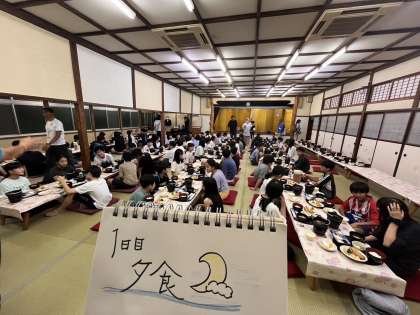 1日目
夕食